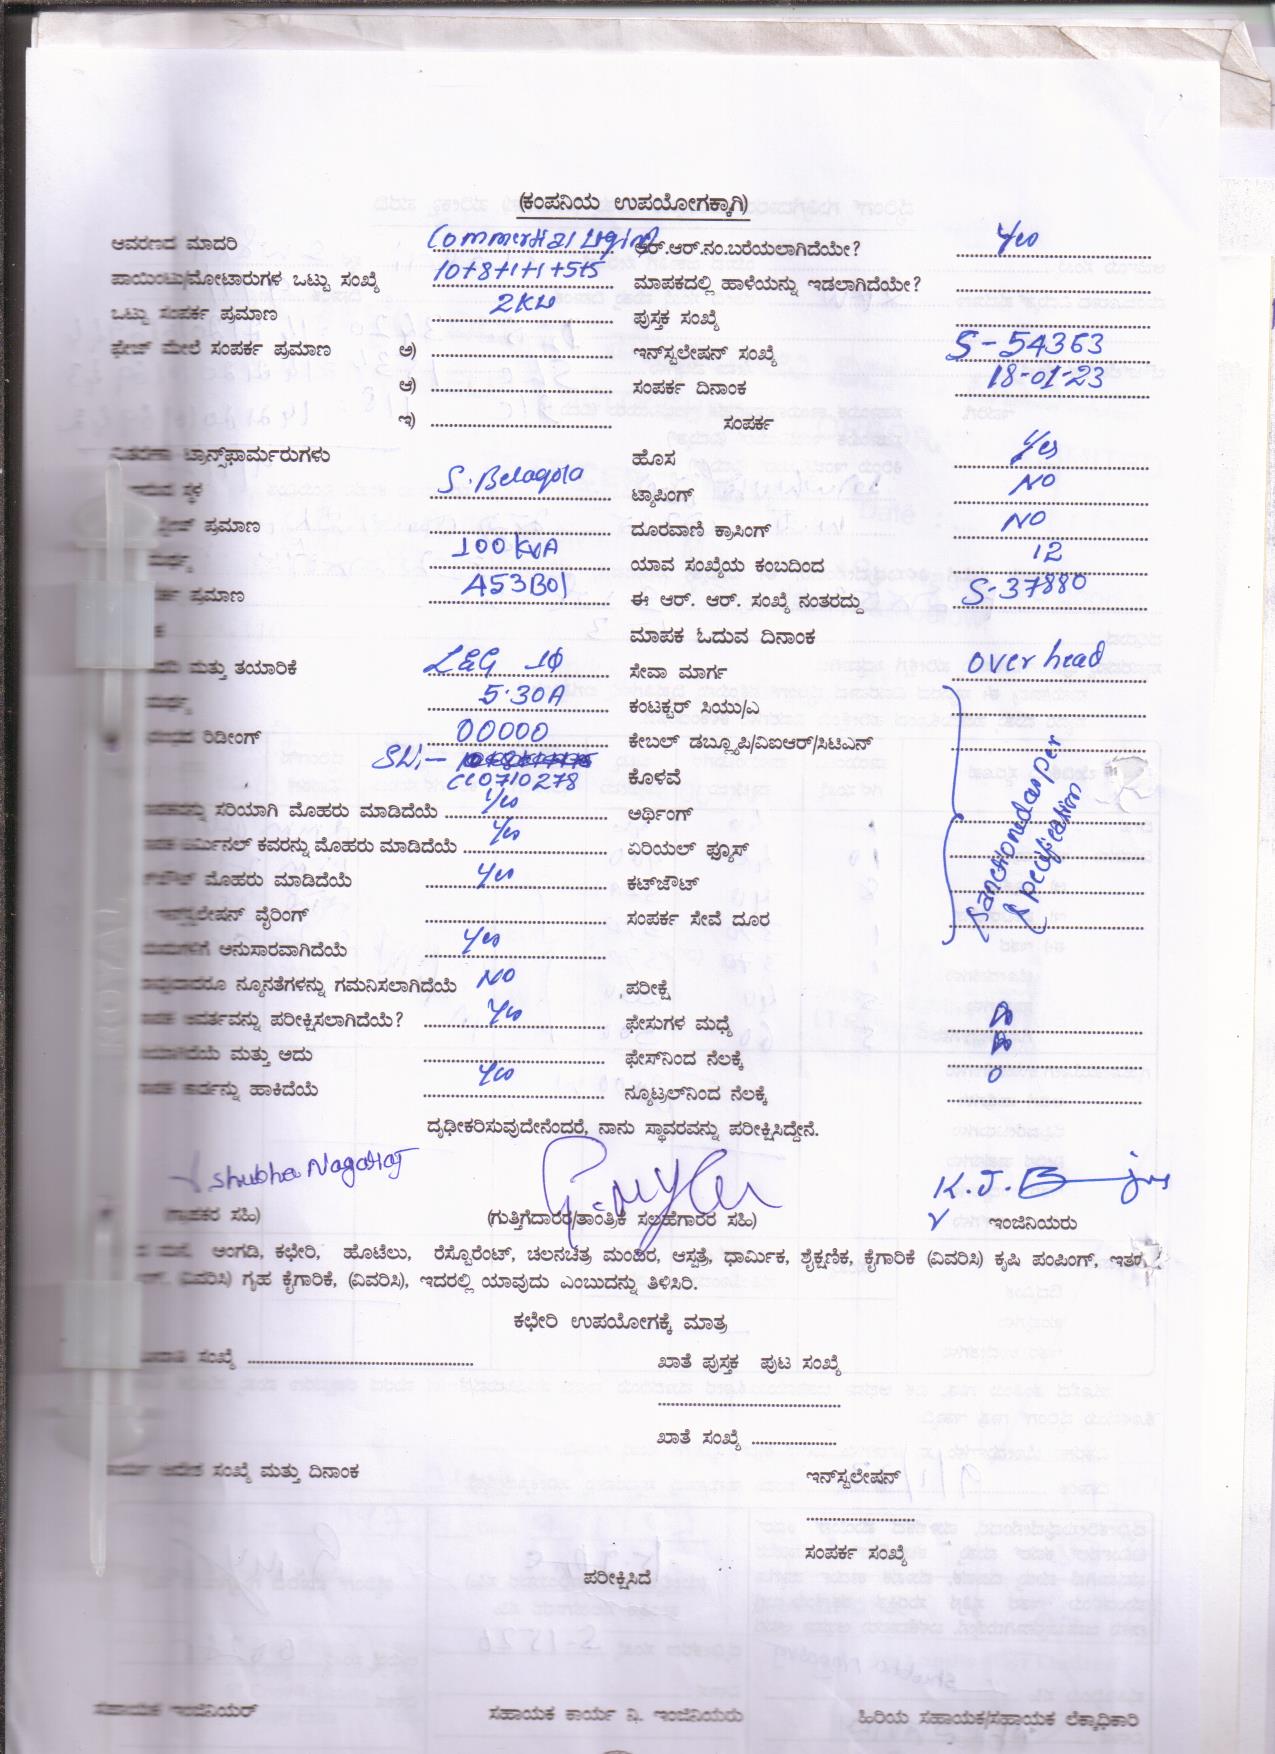 (ಕಂಪನಿಯ ಉಪಯೋಗಕ್ಕಾಗಿ)
ಆವರಣದ ಮಾದರಿ Commercial Lighing ಆರ್.ಆರ್.ನಂ.ಬರೆಯಲಾಗಿದೆಯೇ? Yes
ಪಾಯಿಂಟು/ಮೋಟಾರುಗಳ ಒಟ್ಟು ಸಂಖ್ಯೆ 10+8+1+1+5+5 ಮಾಪಕದಲ್ಲಿ ಹಾಳೆಯನ್ನು ಇಡಲಾಗಿದೆಯೇ?
ಒಟ್ಟು ಸಂಪರ್ಕ ಪ್ರಮಾಣ 2KW ಪುಸ್ತಕ ಸಂಖ್ಯೆ
ಫೇಜ್ ಮೇಲೆ ಸಂಪರ್ಕ ಪ್ರಮಾಣ ಅ) ಇನ್‌ಸ್ಟಲೇಷನ್ ಸಂಖ್ಯೆ S-54363
ಆ) ಸಂಪರ್ಕ ದಿನಾಂಕ 18-01-23
ಇ) ಸಂಪರ್ಕ
ವಿತರಣಾ ಟ್ರಾನ್ಸ್‌ಫಾರ್ಮರುಗಳು ಹೊಸ Yes
ಸ್ಥಳ S.Belagola ಟ್ಯಾಪಿಂಗ್ NO
ಪ್ರಮಾಣ ದೂರವಾಣಿ ಕ್ರಾಸಿಂಗ್ NO
100 KVA ಯಾವ ಸಂಖ್ಯೆಯ ಕಂಬದಿಂದ 12
ಪ್ರಮಾಣ A53B01 ಈ ಆರ್. ಆರ್. ಸಂಖ್ಯೆ ನಂತರದ್ದು S-37880
ಮಾಪಕ ಓದುವ ದಿನಾಂಕ
ಮತ್ತು ತಯಾರಿಕೆ L&G 1Φ ಸೇವಾ ಮಾರ್ಗ over head
5-30A ಕಂಟಕ್ಟರ್ ಸಿಯು/ಎ
ರಿಡೀಂಗ್ 00000 ಕೇಬಲ್ ಡಬ್ಲ್ಯೂಪಿ/ವಿಐಆರ್/ಸಿಟಿಎನ್
SN:-
CC0710278 ಕೊಳವೆ
ಸರಿಯಾಗಿ ಮೊಹರು ಮಾಡಿದೆಯೆ Yes ಅರ್ಥಿಂಗ್
ಟರ್ಮಿನಲ್ ಕವರನ್ನು ಮೊಹರು ಮಾಡಿದೆಯೆ Yes ಏರಿಯಲ್ ಫ್ಯೂಸ್
ಮೊಹರು ಮಾಡಿದೆಯೆ Yes ಕಟ್‌ಜೌಟ್
ಇನ್‌ಸ್ಟಲೇಷನ್ ವೈರಿಂಗ್ ಸಂಪರ್ಕ ಸೇವೆ ದೂರ
Sanctioned as per
Specification
ಅನುಸಾರವಾಗಿದೆಯೆ Yes
ನ್ಯೂನತೆಗಳನ್ನು ಗಮನಿಸಲಾಗಿದೆಯೆ NO ಪರೀಕ್ಷೆ
ಆವರ್ತವನ್ನು ಪರೀಕ್ಷಿಸಲಾಗಿದೆಯೆ? Yes ಫೇಸುಗಳ ಮಧ್ಯೆ
ಮತ್ತು ಅದು ಫೇಸ್‌ನಿಂದ ನೆಲಕ್ಕೆ
ಕಾರ್ಡನ್ನು ಹಾಕಿದೆಯೆ Yes ನ್ಯೂಟ್ರಲ್‌ನಿಂದ ನೆಲಕ್ಕೆ 0
ದೃಢೀಕರಿಸುವುದೇನೆಂದರೆ, ನಾನು ಸ್ಥಾವರವನ್ನು ಪರೀಕ್ಷಿಸಿದ್ದೇನೆ.
Shubha Nagaraj K.J.
(ಗ್ರಾಹಕರ ಸಹಿ) (ಗುತ್ತಿಗೆದಾರರ/ತಾಂತ್ರಿಕ ಸಲಹೆಗಾರರ ಸಹಿ) ಇಂಜಿನಿಯರು
ಮನೆ, ಅಂಗಡಿ, ಕಛೇರಿ, ಹೊಟೆಲು, ರೆಸ್ಟೊರೆಂಟ್, ಚಲನಚಿತ್ರ ಮಂದಿರ, ಆಸ್ಪತ್ರೆ, ಧಾರ್ಮಿಕ, ಶೈಕ್ಷಣಿಕ, ಕೈಗಾರಿಕೆ (ವಿವರಿಸಿ) ಕೃಷಿ ಪಂಪಿಂಗ್, ಇತರ
(ವಿವರಿಸಿ) ಗೃಹ ಕೈಗಾರಿಕೆ, (ವಿವರಿಸಿ), ಇದರಲ್ಲಿ ಯಾವುದು ಎಂಬುದನ್ನು ತಿಳಿಸಿರಿ.
ಕಛೇರಿ ಉಪಯೋಗಕ್ಕೆ ಮಾತ್ರ
ಸಂಖ್ಯೆ ಖಾತೆ ಪುಸ್ತಕ ಪುಟ ಸಂಖ್ಯೆ
ಖಾತೆ ಸಂಖ್ಯೆ
ಕಾರ್ಯ ಆದೇಶ ಸಂಖ್ಯೆ ಮತ್ತು ದಿನಾಂಕ ಇನ್‌ಸ್ಟಲೇಷನ್
ಸಂಪರ್ಕ ಸಂಖ್ಯೆ
ಪರೀಕ್ಷಿಸಿದೆ
ಸಹಾಯಕ ಇಂಜಿನಿಯರ್ ಸಹಾಯಕ ಕಾರ್ಯ ನಿ. ಇಂಜಿನಿಯರು ಹಿರಿಯ ಸಹಾಯಕ/ಸಹಾಯಕ ಲೆಕ್ಕಾಧಿಕಾರಿ